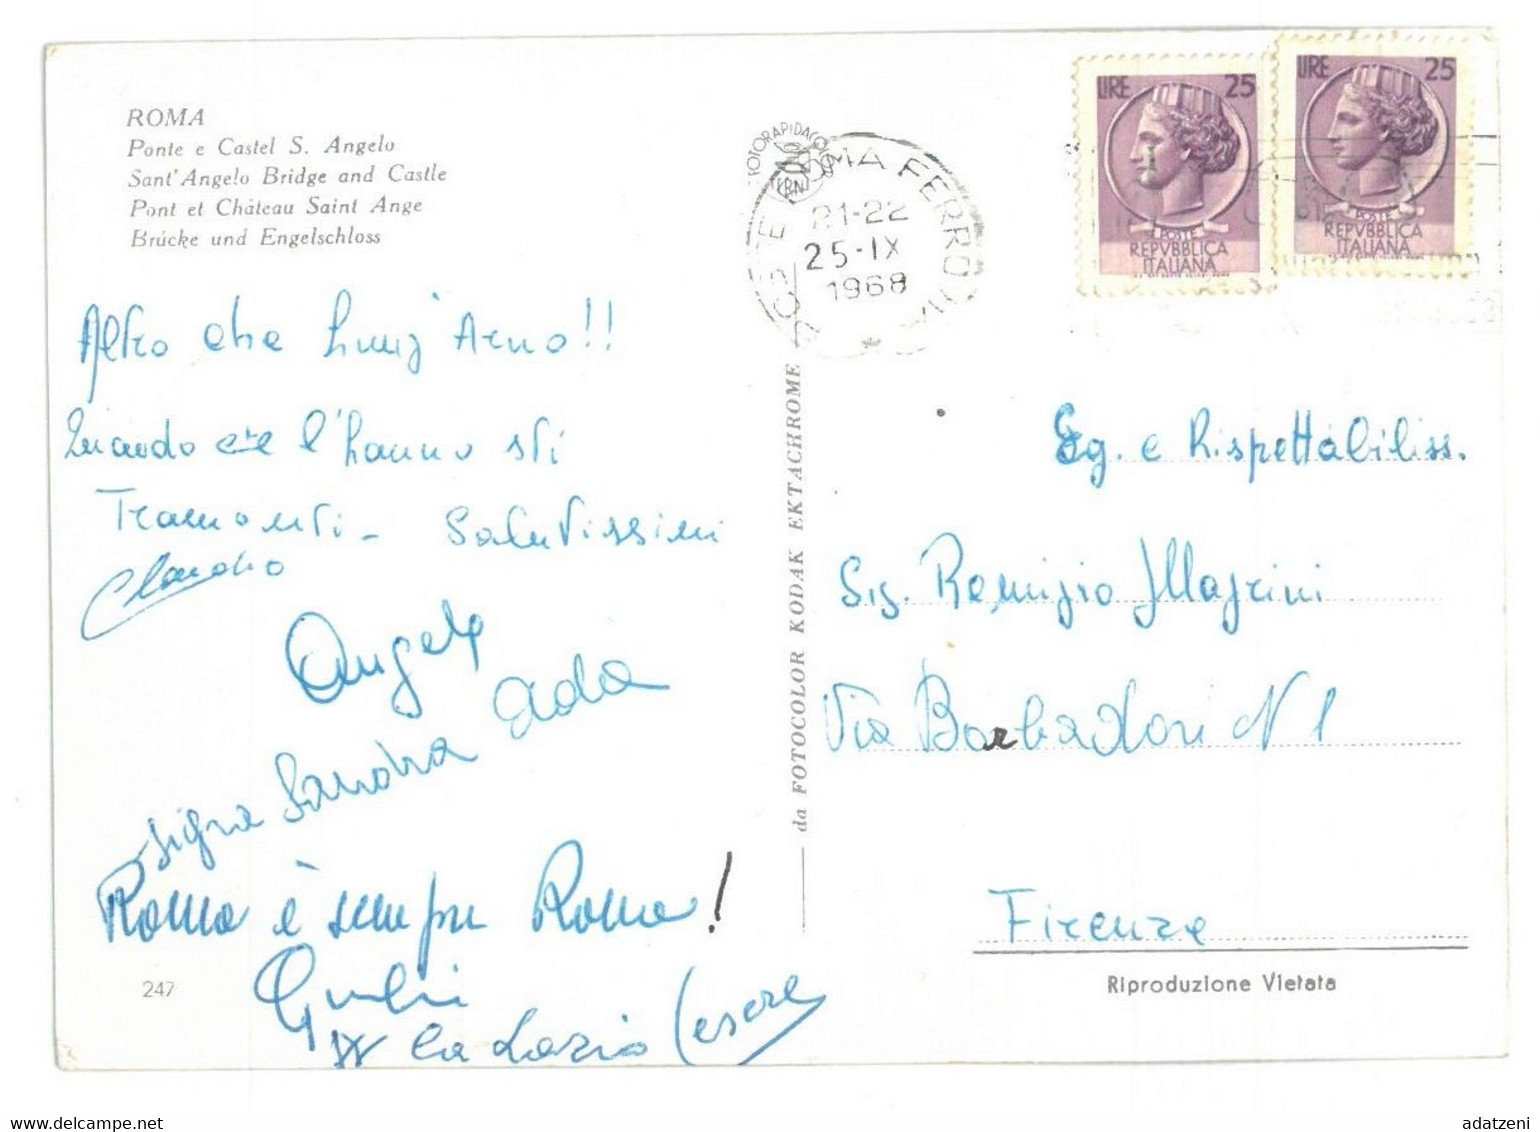 ROMA
Ponte e Castel S. Angelo
Sant'Angelo Bridge and Castle
Pont et Château Saint Ange
Brücke und Engelschloss
Altro che Lung'Arno!!
Quando l'hanno sti
Tramonti - Salutissimi
Claudio
Angela
Ada
Signa Sandra
Roma è sempre Roma!
247
W la Lazio Cesere
FOTORAPIDACOLOR
TERNI
POSTE ROMA FERROVIA
21-22
25-IX
1968
LIRE 25
POSTE
REPVBBLICA
ITALIANA
LIRE 25
POSTE
REPVBBLICA
ITALIANA
da FOTOCOLOR KODAK EKTACHROME
Eg. e Rispettabiliss.
Sig. Remigio Magrini
Via Barbadori N 1
Firenze
Riproduzione Vietata
adatzeni
www.delcampe.net